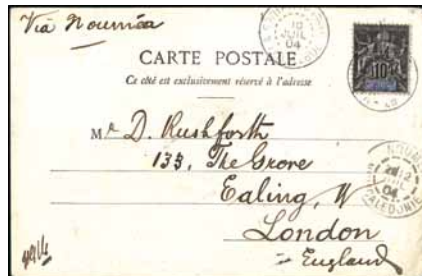 Via Nouméa
10
JUIL
04
CARTE POSTALE
Ce côté est exclusivement réservé à l'adresse
10
Mr D. Rushforth
135, The Grove
Ealing, W
London
England
CALEDONIE
04